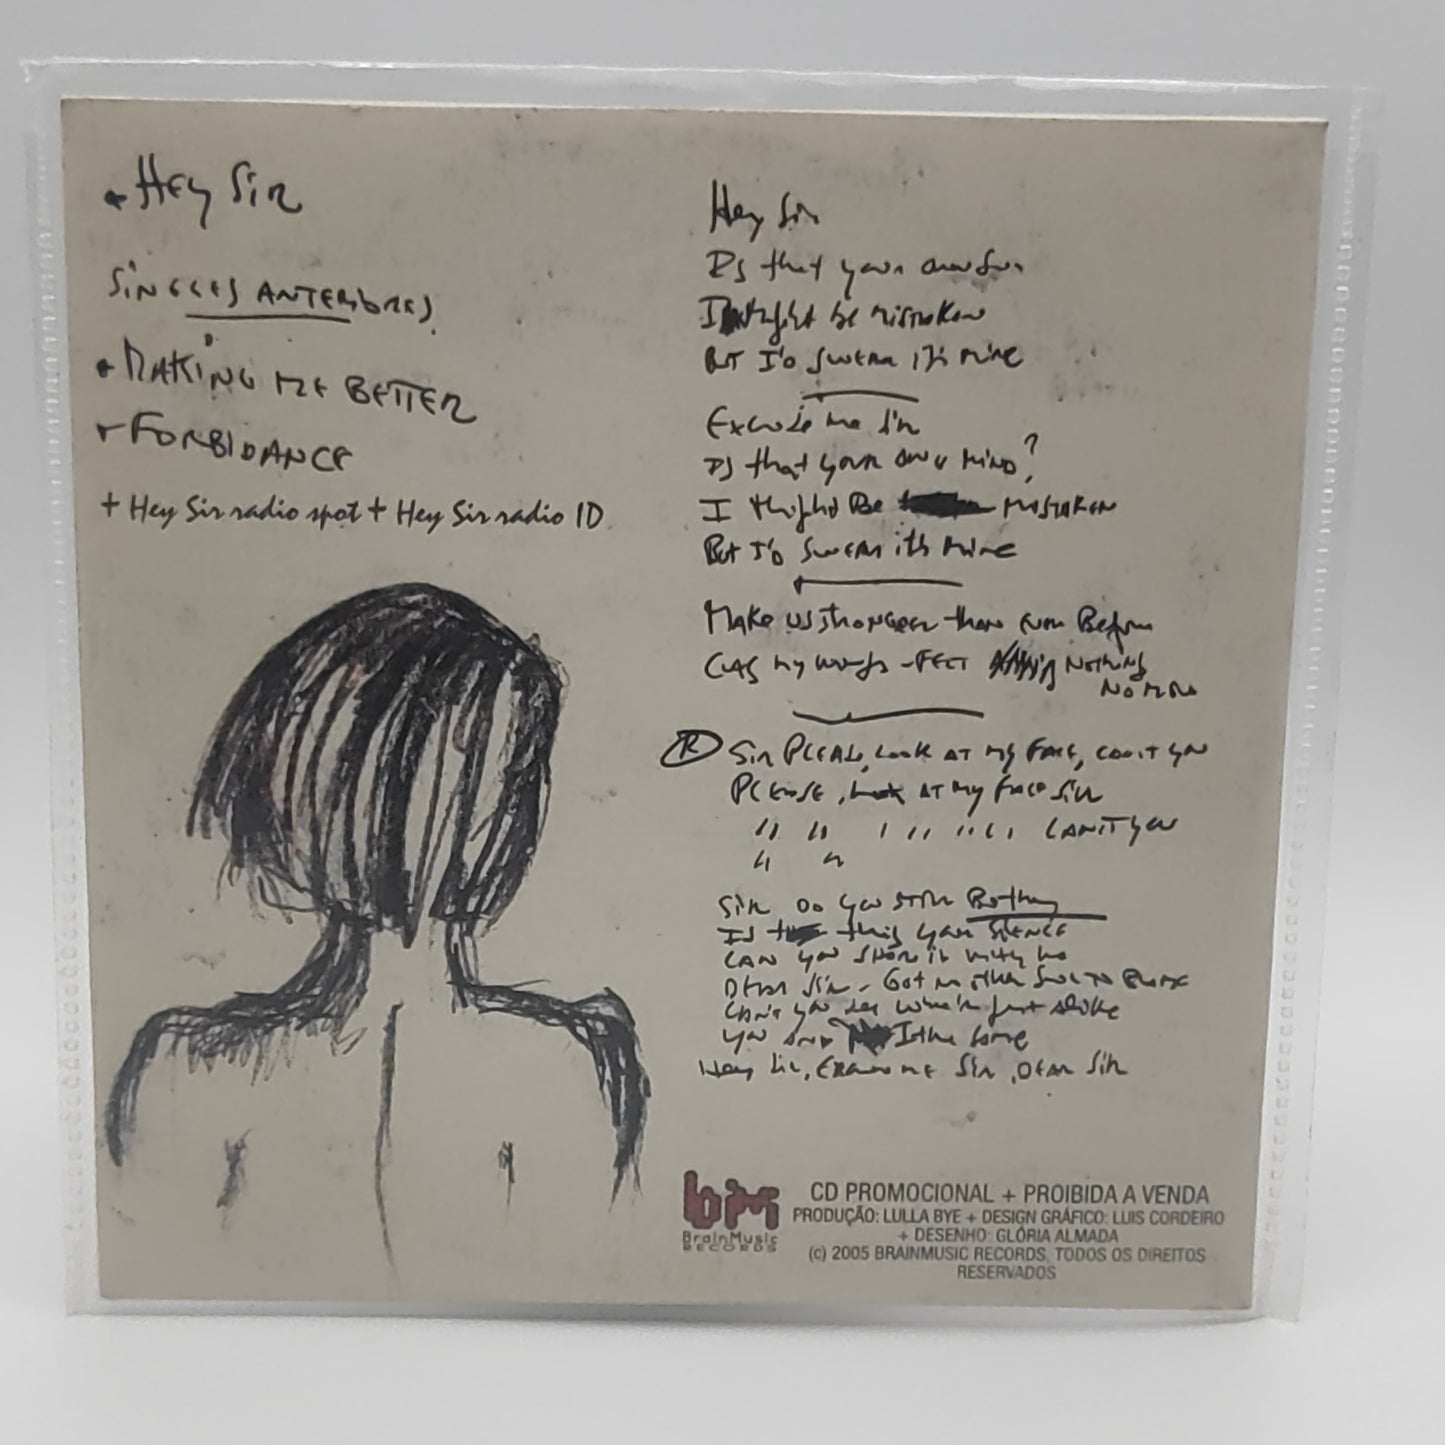 Hey Sir
SINGLES ANTERIORES
MAKING ME BETTER
FORBIDANCE
+ Hey Sir radio spot + Hey Sir radio ID
Hey Sir
Is that your own
I might be mistaken
But I'd swear it's mine
Excuse me Sir
Is that your own mind?
I might Be mistaken
But I'd swear it's mine
Make us stronger than ever Before
my wings - FEET NOTHING
NO MORE
R Sir PLEASE, Look AT my FACE, CAN'T you
PLEASE, Look AT my FACE Sir
" " ' " " " ' CAN'T you
" "
Sir Do you still
Is this your SILENCE
CAN you share it with me
DEAR Sir - Got no other soul to
CAN'T you see we're just alike
you and I the same
Hey Sir, EXCUSE ME Sir, DEAR Sir
bm
BrainMusic
RECORDS
CD PROMOCIONAL + PROIBIDA A VENDA
PRODUÇÃO: LULLA BYE + DESIGN GRÁFICO: LUIS CORDEIRO
+ DESENHO: GLÓRIA ALMADA
(c) 2005 BRAINMUSIC RECORDS, TODOS OS DIREITOS
RESERVADOS